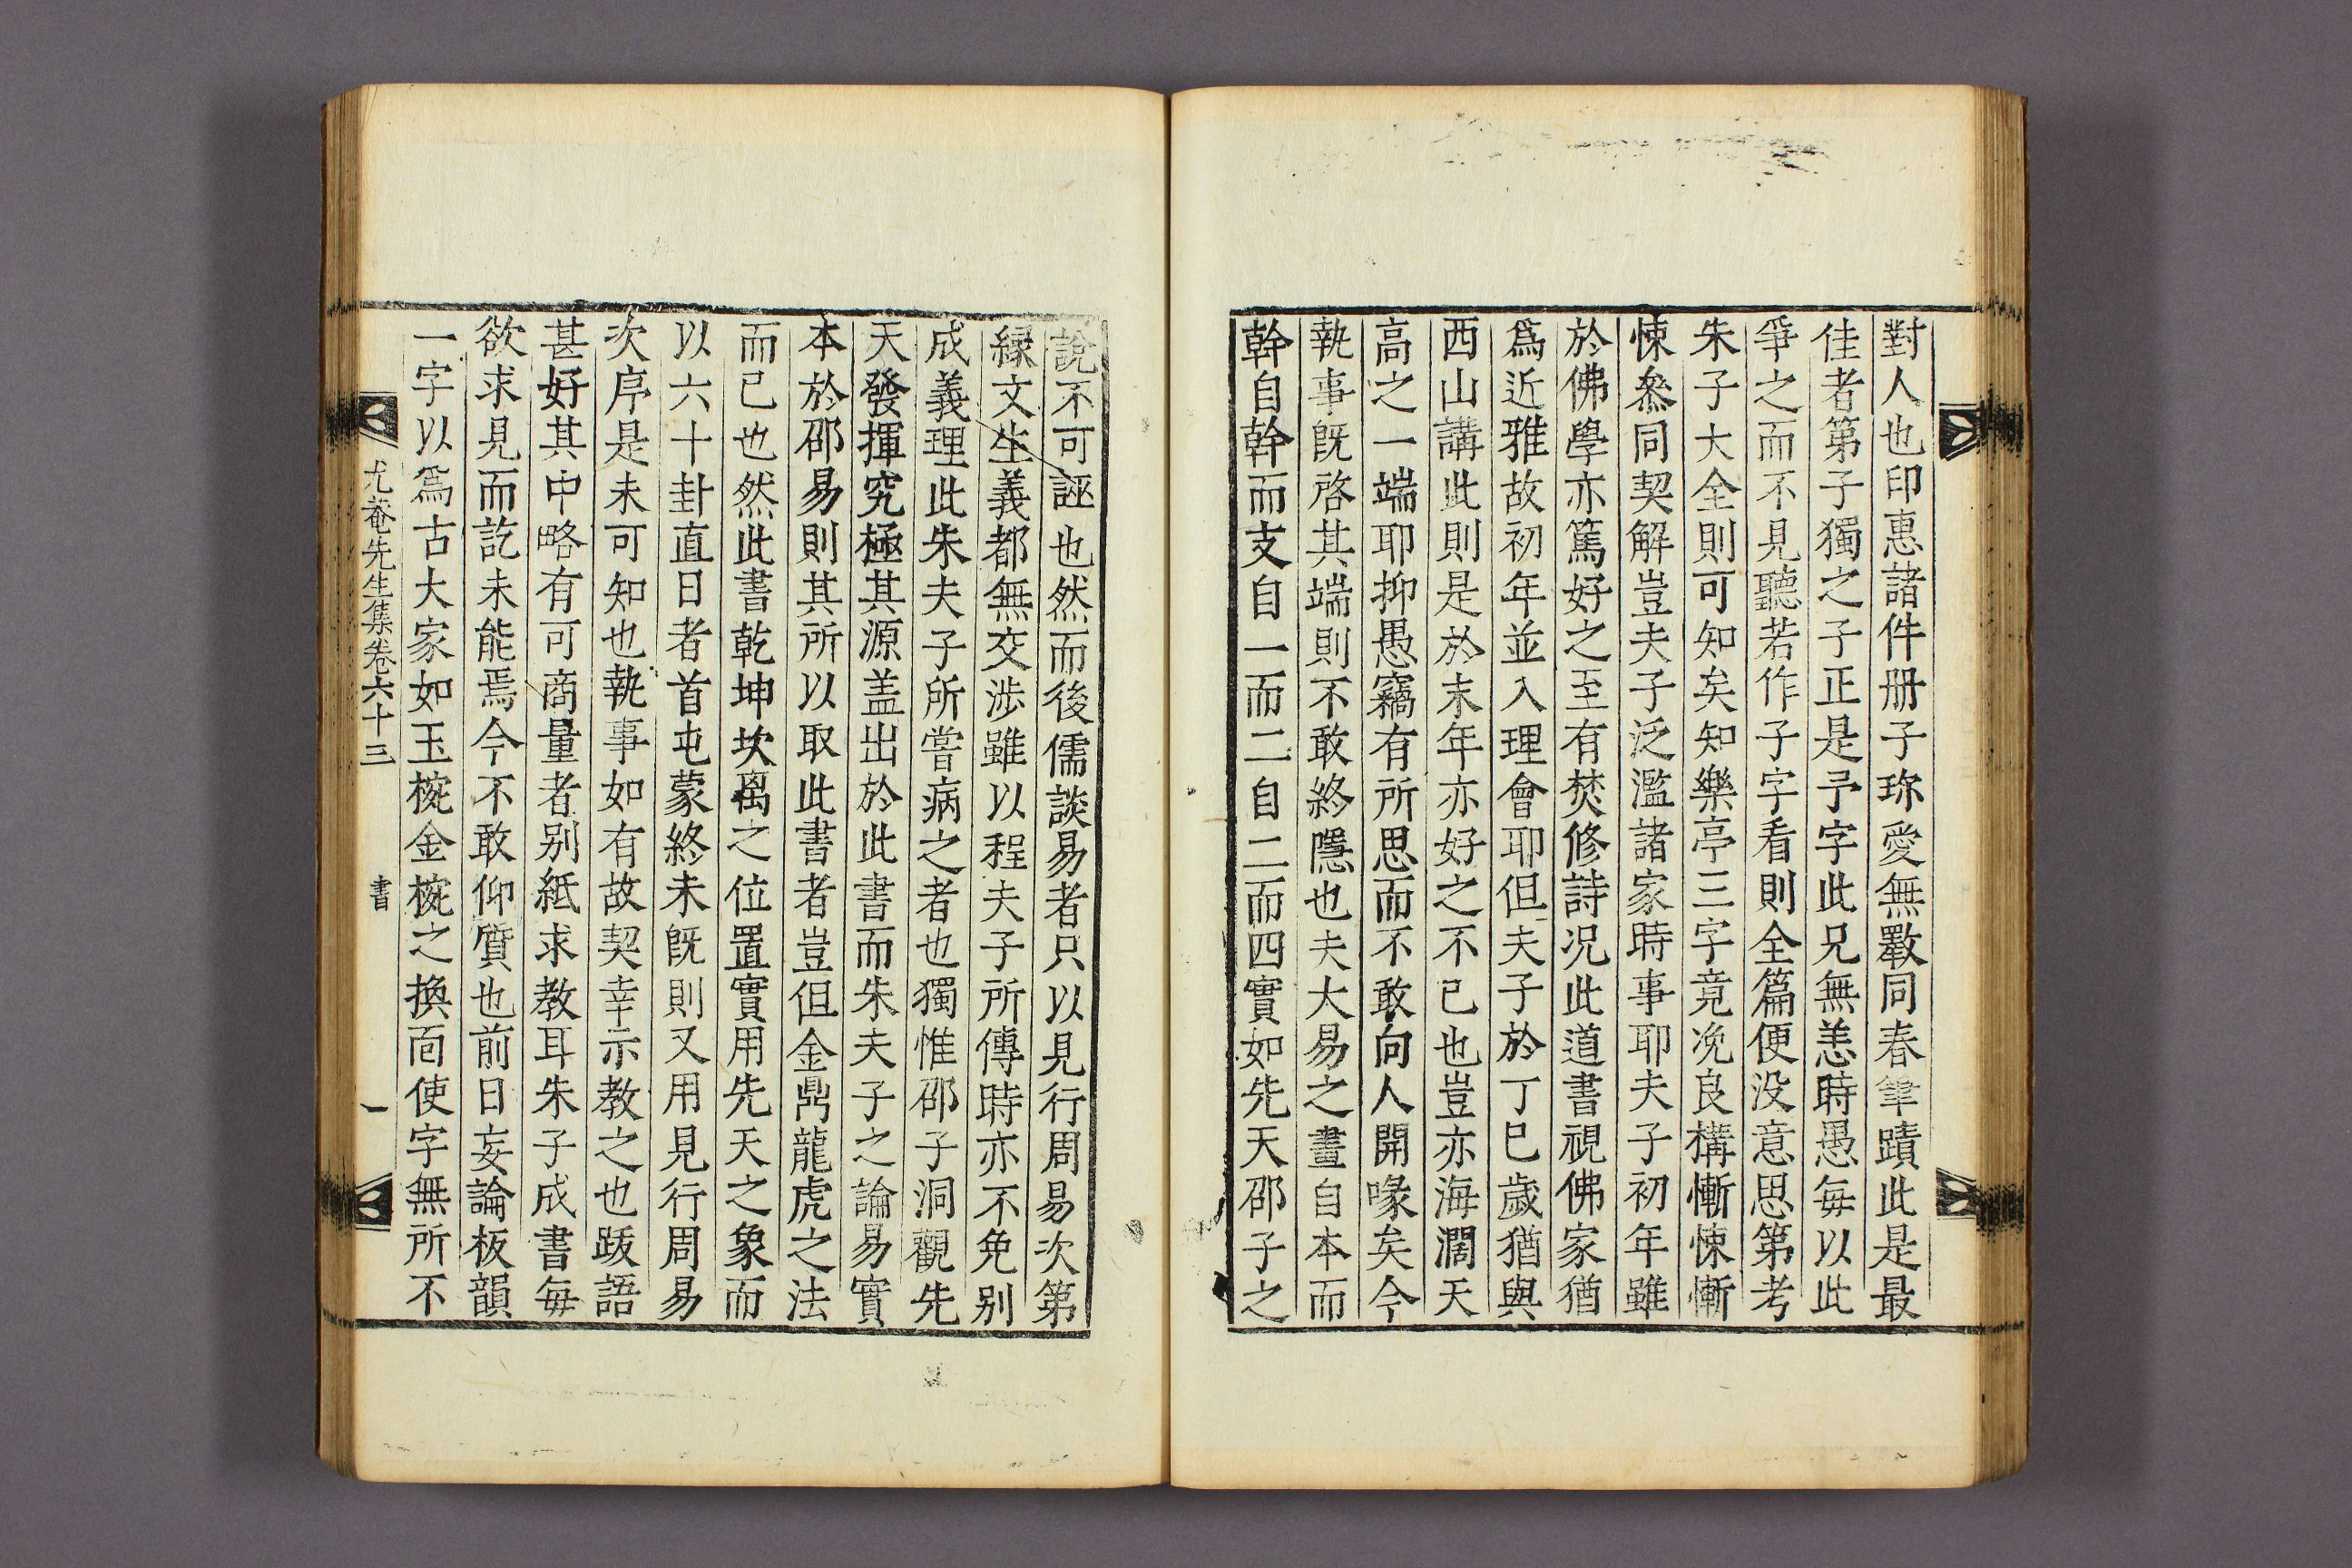 對人也印惠諸件册子珎愛無斁同春筆蹟此是最
佳者第子獨之子正是予字此兄無恙時愚每以此
爭之而不見聽若作子字看則全篇便没意思第考
朱子大全則可知矣知樂亭三字竟免良搆慚悚慚
悚叅同契解豈夫子泛濫諸家時事耶夫子初年雖
於佛學亦篤好之至有焚修詩况此道書視佛家猶
爲近雅故初年並入理會耶但夫子於丁巳歲猶與
西山講此則是於末年亦好之不已也豈亦海濶天
高之一端耶抑愚竊有所思而不敢向人開喙矣今
執事旣啓其端則不敢終隱也夫大易之畫自本而
幹自幹而支自一而二自二而四實如先天邵子之
說不可誣也然而後儒談易者只以見行周易次第
緣文生義都無交涉雖以程夫子所傳時亦不免别
成義理此朱夫子所嘗病之者也獨惟邵子洞觀先
天發揮究極其源盖出於此書而朱夫子之論易實
本於邵易則其所以取此書者豈但金鼎龍虎之法
而已也然此書乾坤坎离之位置實用先天之象而
以六十卦直日者首屯蒙終未旣則又用見行周易
次序是未可知也執事如有故契幸示教之也跋語
甚好其中略有可商量者别紙求教耳朱子成書每
欲求見而訖未能焉今不敢仰質也前日妄論板韻
一字以爲古大家如玉椀金椀之換而使字無所不
尤菴先生集卷六十三 書 一